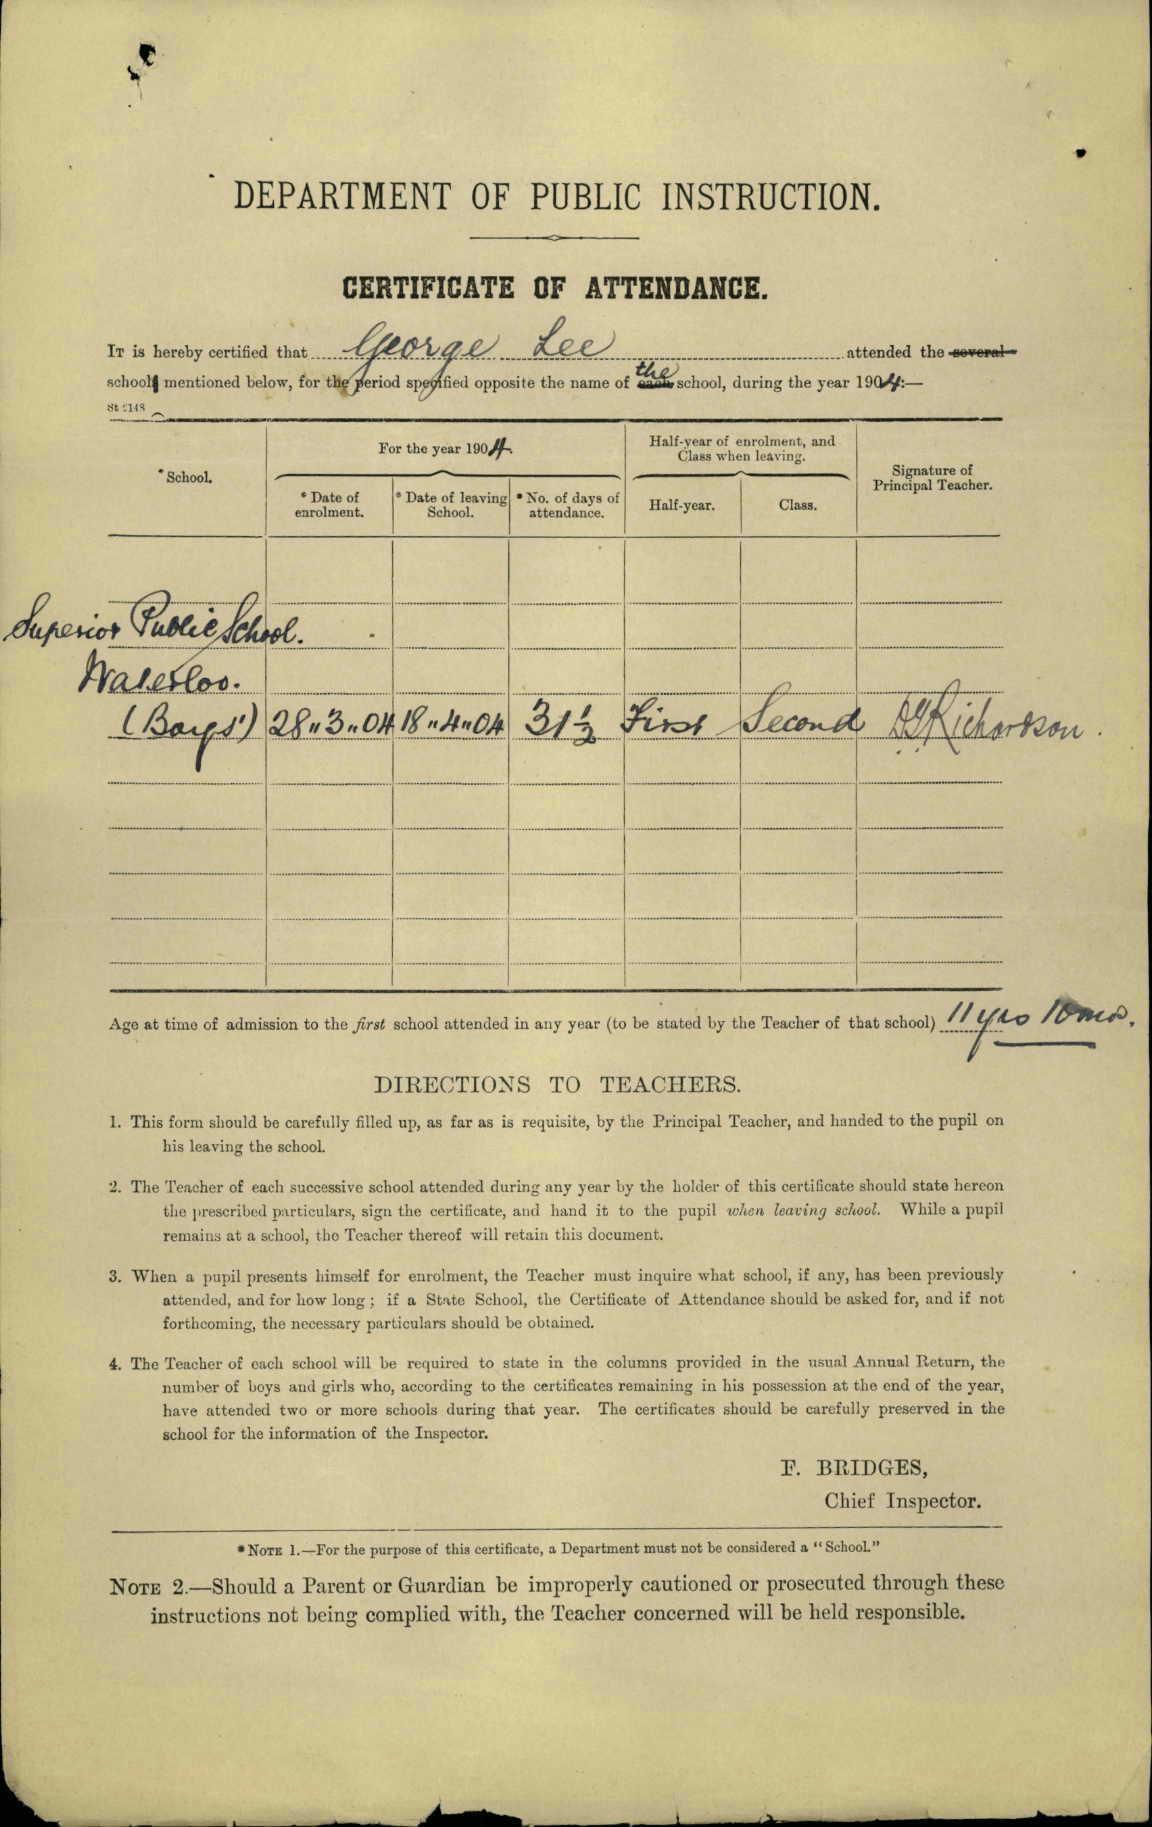 DEPARTMENT OF PUBLIC INSTRUCTION.
CERTIFICATE OF ATTENDANCE.
IT is hereby certified that George Lee attended the several
the
schools mentioned below, for the period specified opposite the name of each school, during the year 1904:—
St 2148
*School.
For the year 1904.
* Date of enrolment.
* Date of leaving School.
* No. of days of attendance.
Half-year of enrolment, and Class when leaving.
Half-year.
Class.
Signature of Principal Teacher.
Superior Public School.
Waterloo.
(Boys') 28"3"04 18"4"04 31 1/2 First Second Richardson
Age at time of admission to the first school attended in any year (to be stated by the Teacher of that school) 11 yrs 10 mos.
DIRECTIONS TO TEACHERS.
1. This form should be carefully filled up, as far as is requisite, by the Principal Teacher, and handed to the pupil on
his leaving the school.
2. The Teacher of each successive school attended during any year by the holder of this certificate should state hereon
the prescribed particulars, sign the certificate, and hand it to the pupil when leaving school. While a pupil
remains at a school, the Teacher thereof will retain this document.
3. When a pupil presents himself for enrolment, the Teacher must inquire what school, if any, has been previously
attended, and for how long; if a State School, the Certificate of Attendance should be asked for, and if not
forthcoming, the necessary particulars should be obtained.
4. The Teacher of each school will be required to state in the columns provided in the usual Annual Return, the
number of boys and girls who, according to the certificates remaining in his possession at the end of the year,
have attended two or more schools during that year. The certificates should be carefully preserved in the
school for the information of the Inspector.
F. BRIDGES,
Chief Inspector.
*NOTE 1.—For the purpose of this certificate, a Department must not be considered a "School."
NOTE 2.—Should a Parent or Guardian be improperly cautioned or prosecuted through these
instructions not being complied with, the Teacher concerned will be held responsible.